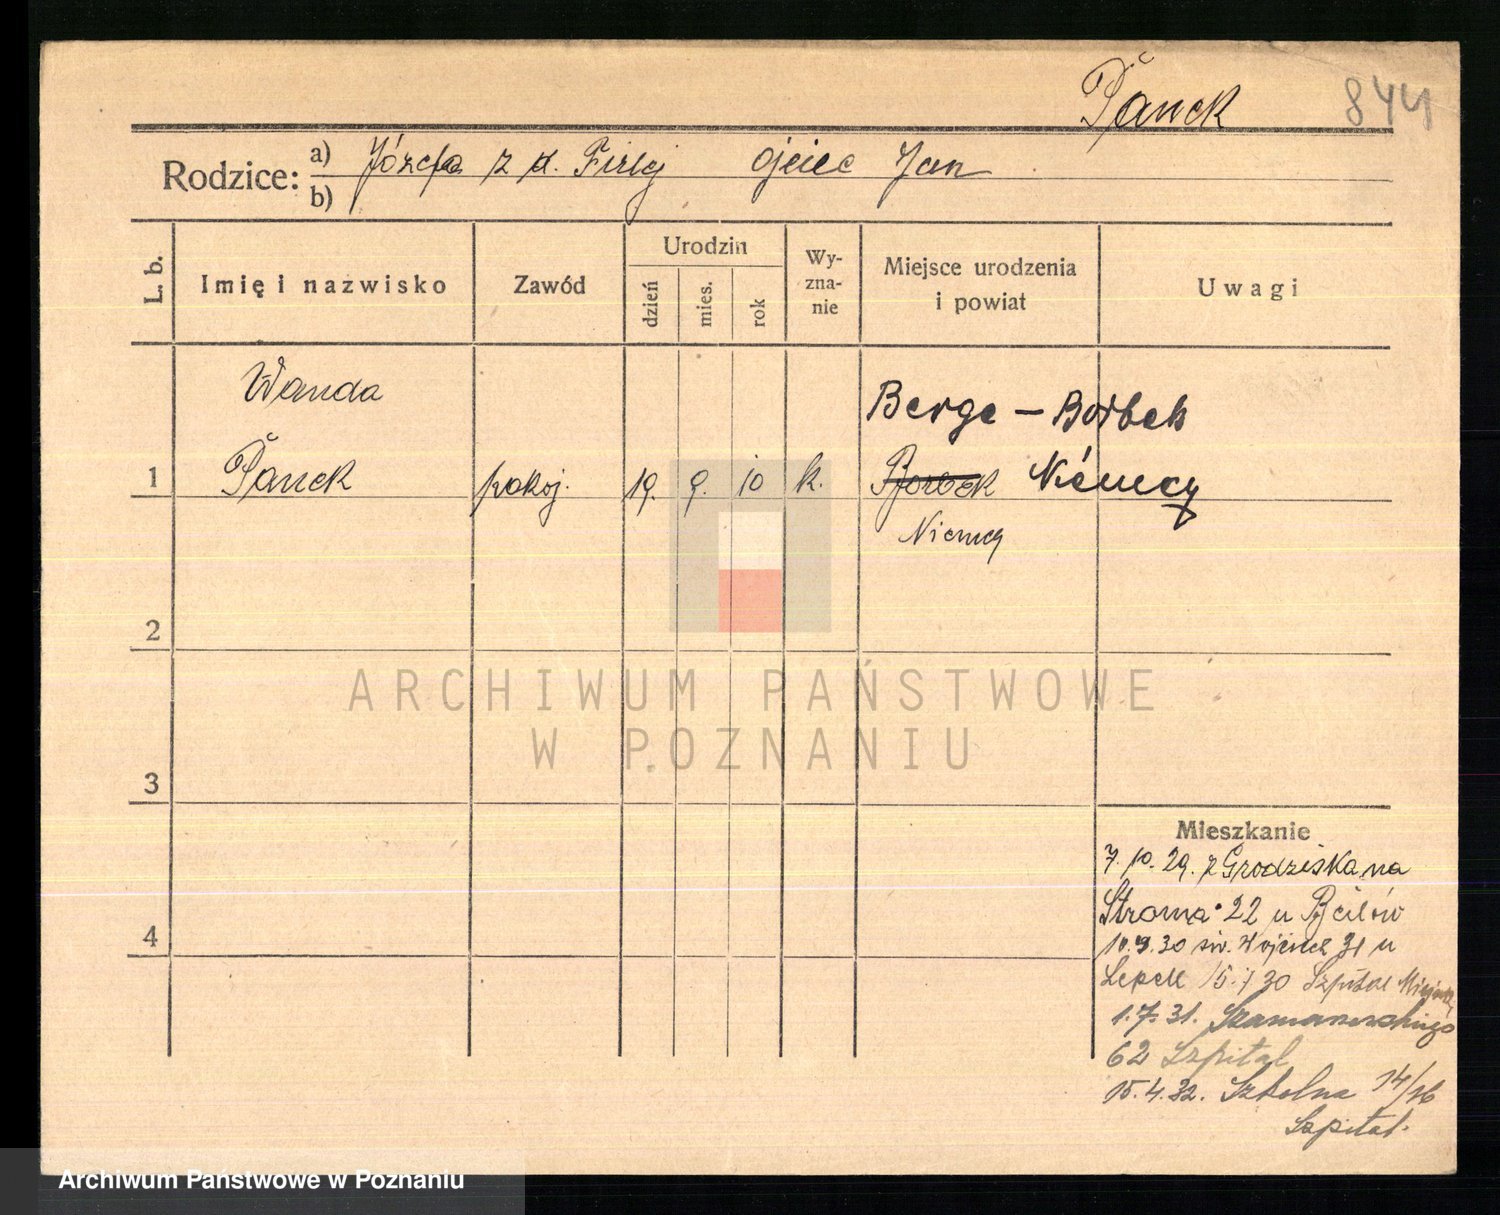 Panek 844
Rodzice: a) Józefa z d. Firlej ojciec Jan
b)
L. b. Imię i nazwisko Zawód Urodzin dzień mies. rok Wyznanie Miejsce urodzenia i powiat Uwagi
Wanda Berge – Borbek
1 Panek pokoj. 19. 9. 10 k. Borbek Niemcy
Niemcy
2
ARCHIWUM PAŃSTWOWE
W POZNANIU
3
Mieszkanie
7.10.29. z Grodziska na
Stroma 22 u
4
10.9.30 św. Wojciech 31 u
30 Szpital Miejski
1.7.31. Szamarzewskiego
62 Szpital
15.4.32. Szkolna 14/16
Szpital.
Archiwum Państwowe w Poznaniu